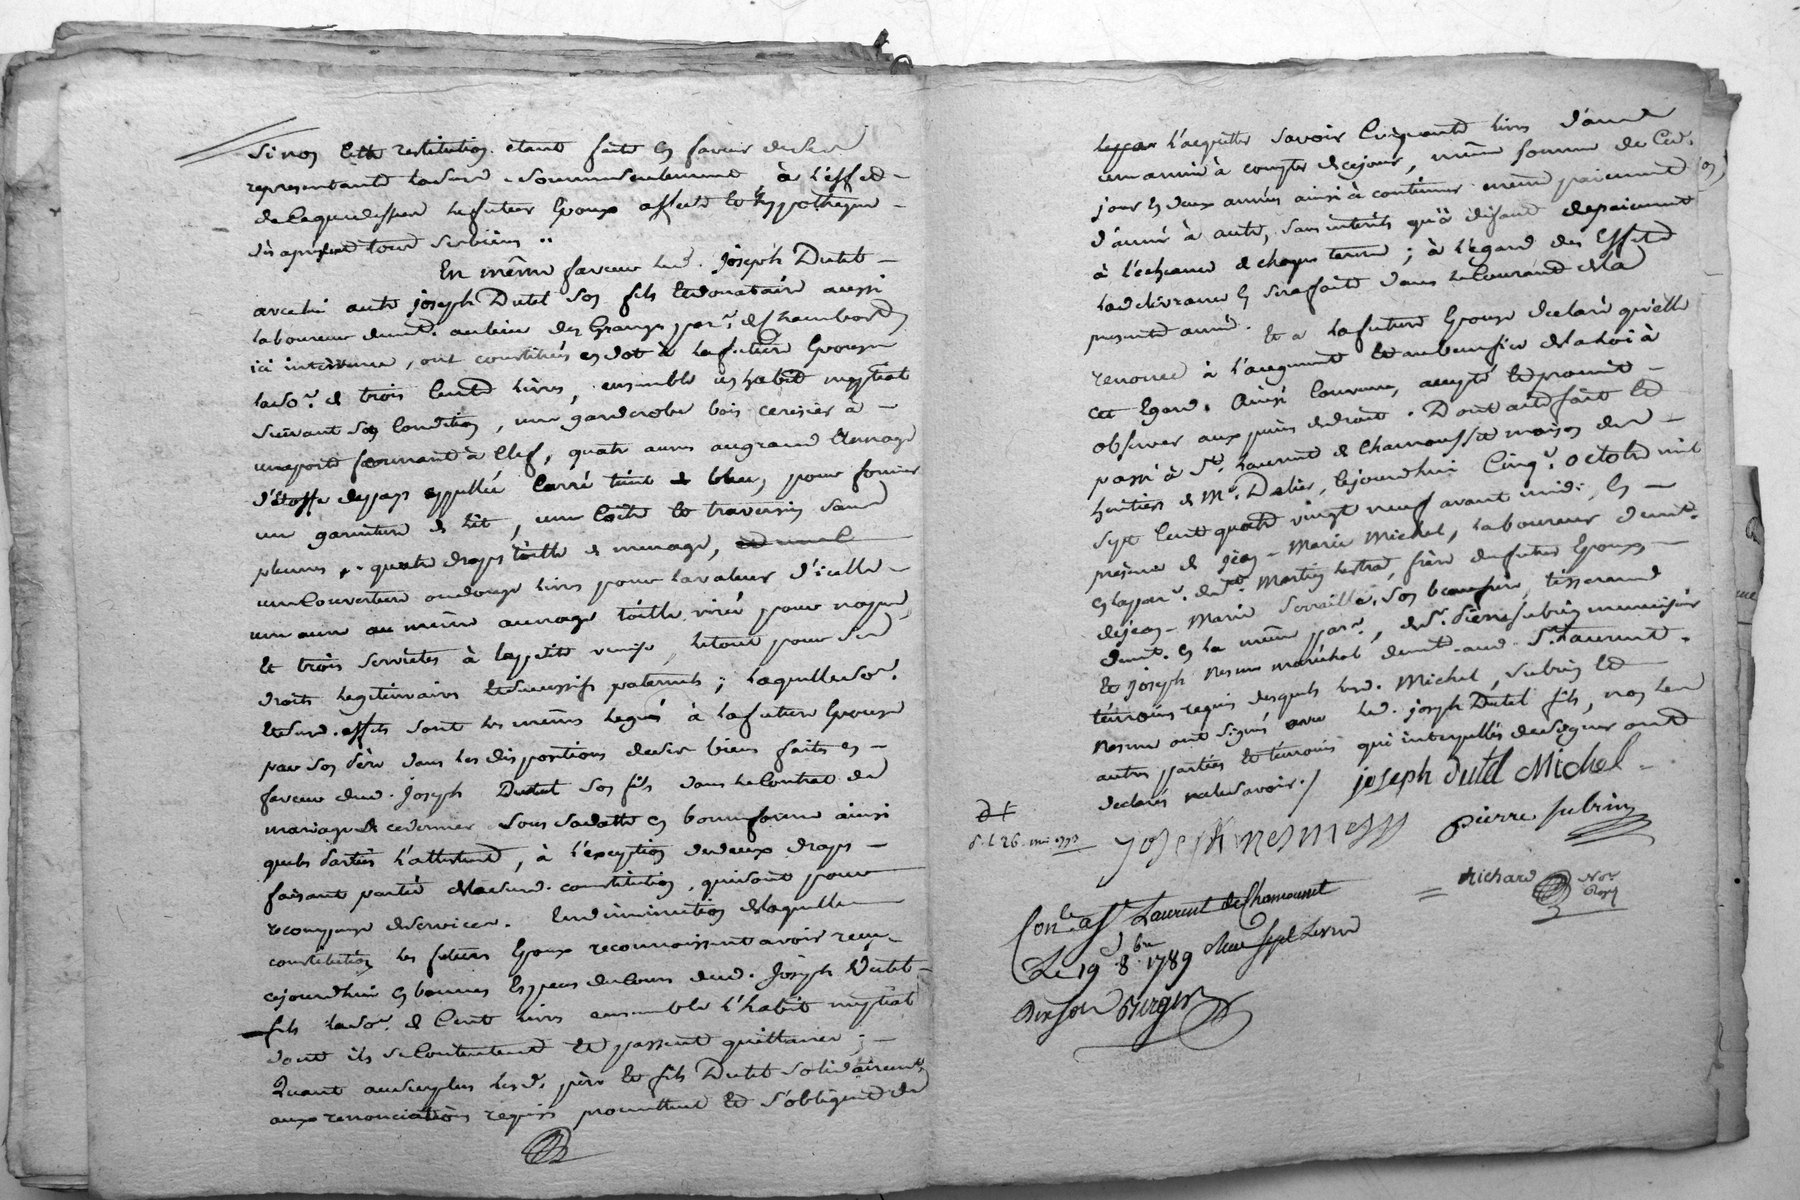 Sinon cette restitution étant faite en faveur de leur
representants lad. somme seulement à l'effet
de laquelle led. futur Epoux affecte et hypothèque
dès aprésent tous ses biens ..
En même faveur led. Joseph Dutel
avec lui autre joseph Dutel son fils et donataire aussi
laboureur demt. au lieu des Granges parr. de Chambost
ici intervenu, ont constitué en dot à la future Epouse
la so.e de trois Cents livres, ensemble un habit nuptial
suivant sa Condition, une garderobe bois cerisier à
une porte fermant à Clef, quatre aunes au grand aunage
d'étoffe de pays appellée Carré teint de bleu, pour former
une garniture de lit, une Coëte et traversin sans
plumes, quatre draps toille de menage,
une Couverture ou douze livres pour la valeur d'icelle
une aune au même aunage toille pour nappe,
et trois serviettes à la petite venise, le tout pour ses
droits legitimaires et successifs paternels ; laquelle so.e
et susd. effets sont les mêmes legués à la future Epouse
par son père dans les dispositions de ses biens faites en
faveur dud. Joseph Dutel son fils dans le Contrat de
mariage de ce dernier sous sa datte en bonne forme ainsi
que les Parties l'attestent, à l'exception de deux draps
faisant partie de la susd. constitution, qui sont pour
recompense de services. En diminution de laquelle
constitution les futurs Epoux reconnoissent avoir reçu
cejourdhui en bonnes Especes du Cours dud. Joseph Dutel
fils la so.e de Cent livres ensemble l'habit nuptial
dont ils se Contentent et passent quittance ;
Quant au surplus lesd. père et fils Dutel solidairement
aux renonciations requises promettent et s'obligent de
l'acquitter savoir Cinquante livres dans
une année à compter de cejour, même somme de Ced.
jour en deux années ainsi à continuer même paiement
d'année à autre, sans interêts qu'à défaut de paiement
à l'echeance de chaque terme ; à l'égard des Effets
la delivrance en sera faite dans le Courant de la
presente année. Et a la future Epouse declaré qu'elle
renonce à l'augment et au benefice de la loi à
cet Egard. Ainsi Convenu, accepté et promis
observer aux peines de droit. Dont acte fait et
passé à St. Laurent de Chamousset maison des
heritiers de Mr. Delier, cejourdhui Cinq.e octobre mil
sept Cent quatre vingt neuf avant midi, en
presence de Jean-Marie Michel, laboureur demt.
en la parr. de St. Martin Lestra, frère du futur Epoux,
de jean-Marie son beaufrère, tisserand
demt. en la même parr., de Sr. Pierre Subrin
et Joseph Nesme maréchal demt. aud. St. Laurent
témoins requis desquels lesd. Michel, Subrin et
Nesme ont signés avec led. joseph Dutel fils, non les
autres parties et témoins qui interpellés de signer ont
declarés ne le savoir ./ joseph dutel Michel
joseph nesme
pierre subrin
Richard Nore Royl
Con.lé a St Laurent de Chamousset
Le 19 8bre 1789